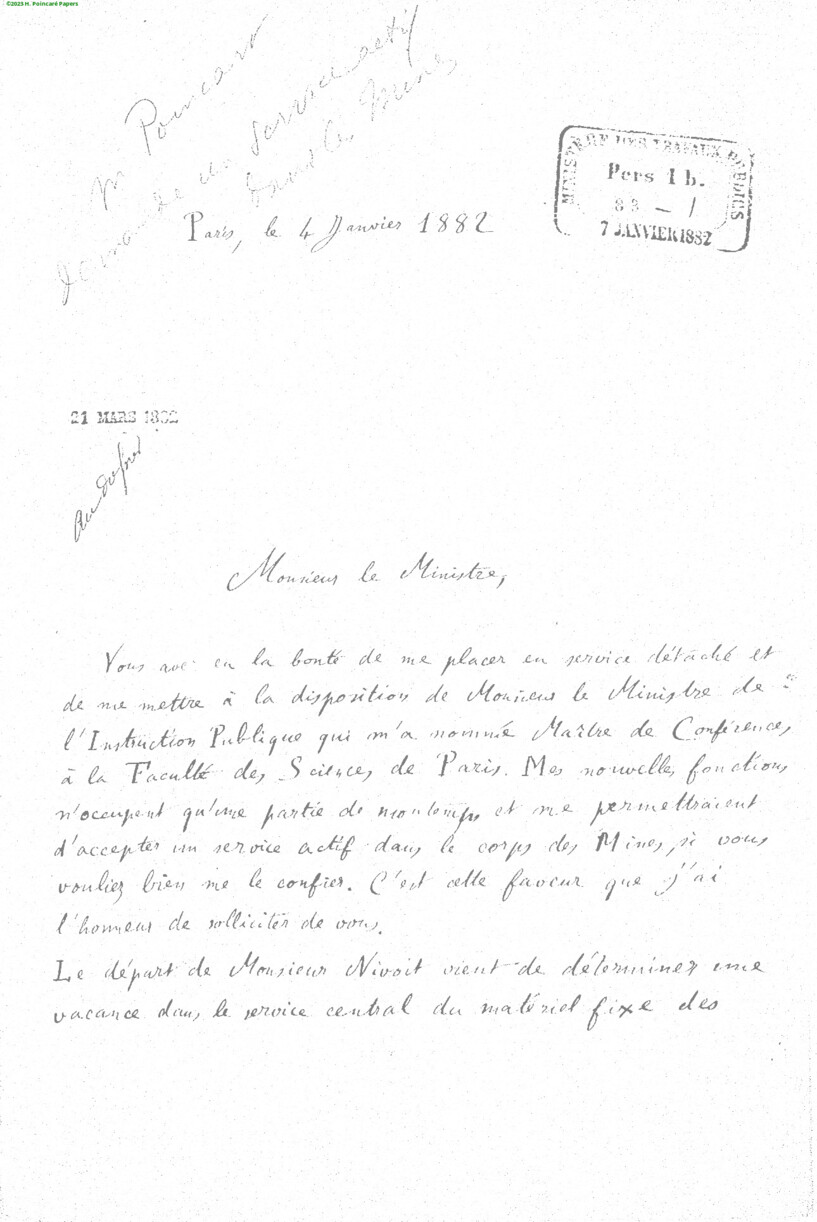 ©2023 H. Poincaré Papers
M Poincaré
demande un service actif
dans les Mines
MINISTÈRE DES TRAVAUX PUBLICS
Pers 1 b.
83 — 1
7 JANVIER 1882
Paris, le 4 Janvier 1882
21 MARS 1882
Au
Monsieur le Ministre,
Vous avez eu la bonté de me placer en service détaché et
de me mettre à la disposition de Monsieur le Ministre de
l'Instruction Publique qui m'a nommé Maître de Conférences
à la Faculté des Sciences de Paris. Mes nouvelles fonctions
n'occupent qu'une partie de mon temps et me permettraient
d'accepter un service actif dans le corps des Mines, si vous
vouliez bien me le confier. C'est cette faveur que j'ai
l'honneur de solliciter de vous.
Le départ de Monsieur Nivoit vient de déterminer une
vacance dans le service central du matériel fixe des